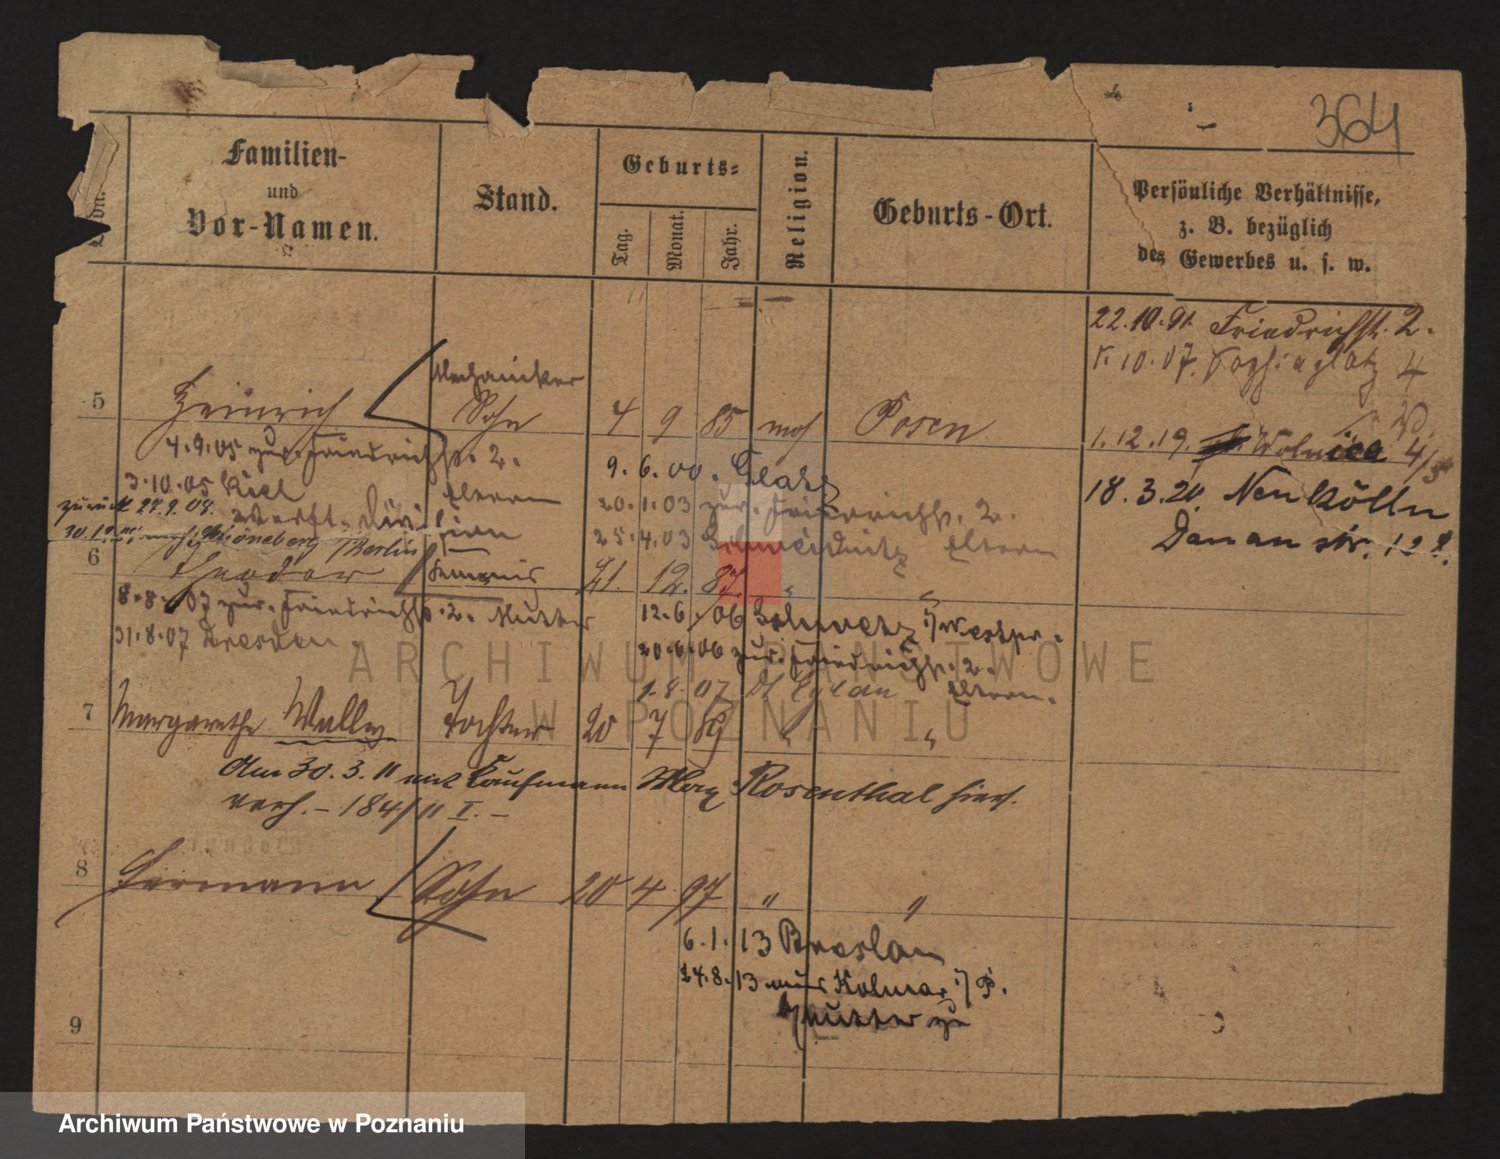 364
Familien-
und
Vor-Namen.
Stand.
Geburts-
Tag.
Monat.
Jahr.
Religion.
Geburts-Ort.
Persönliche Verhältnisse,
z. B. bezüglich
des Gewerbes u. s. w.
22.10.91. Friedrichst. 2.
10.07. Sophienplatz 4
Mechaniker
5 Heinrich Sohn 4 9 85 mos Posen
1.12.19. Wolnica 4/5
4.9.05 zur. Friedrichstr. 2.
9.6.00. Glatz
3.10.05 Kiel
20.1.03 zur. Friedrichstr. 2. Eltern
18.3.20. Neukölln
Donaustr. 12
zurück 27.9.08.
Werft-Division
25.4.03 Schweidnitz Eltern
Schöneberg / Berlin
6 Theodor 21. 12. 87. " "
8.8.07 zur. Friedrichstr. 2. Mutter
12.6.06 Schwetz i/Westpr.
31.8.07 Dresden.
20.6.06 zur. Friedrichstr. 2.
1.8.07 Dt Eylau Eltern.
7 Margarethe Wally Tochter 20 7 89 " "
Am 30.3.11 mit Kaufmann Max Rosenthal hies.
verh. – 184/11 I. –
8 Hermann Sohn 20 4 97 " "
6.1.13 Breslau
24.8.13 aus Kolmar i/P.
Mutter zu
9
ARCHIWUM PAŃSTWOWE
W POZNANIU
Archiwum Państwowe w Poznaniu